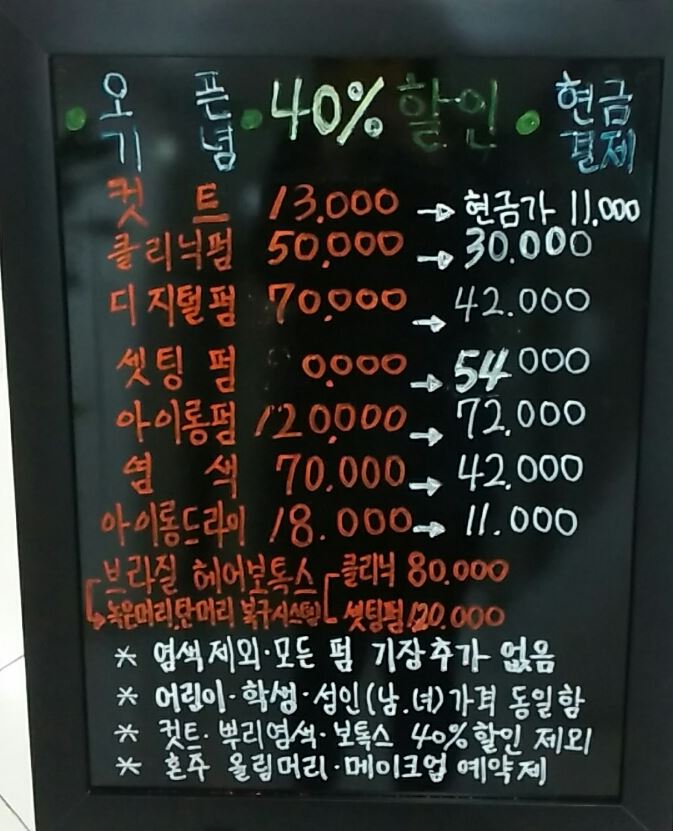 오픈 기념 • 40% 할인 • 현금 결제
컷트 13.000 → 현금가 11.000
클리닉펌 50.000 → 30.000
디지털펌 70.000 → 42.000
셋팅펌 0.000 → 54.000
아이롱펌 120.000 → 72.000
염색 70.000 → 42.000
아이롱드라이 18.000 → 11.000
브라질 헤어보톡스 클리닉 80.000
녹은머리,탄머리 복구시스템 셋팅펌 120.000
* 염색제외·모든 펌 기장추가 없음
* 어린이·학생·성인(남.녀)가격 동일함
* 컷트·뿌리염색·보톡스 40%할인 제외
* 혼주 올림머리·메이크업 예약제